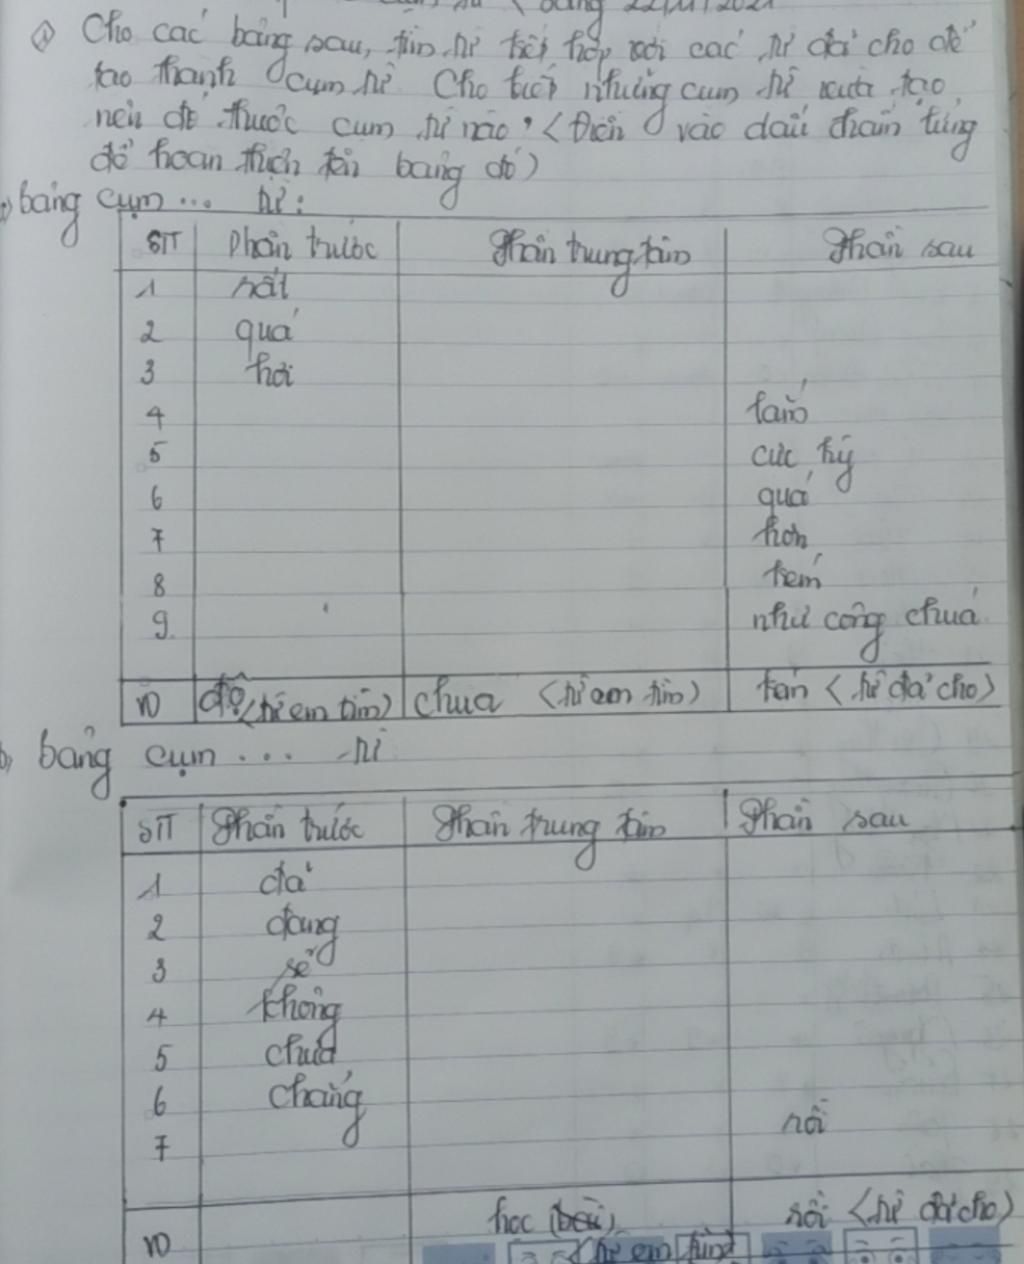 Cho các bảng sau, tìm từ kết hợp với các từ đã cho để
tạo thành cụm từ. Cho biết những cụm từ vừa tạo
nên đó thuộc cụm từ nào? (Điền vào dấu chấm lửng
để hoàn thiện tên bảng đó)
bảng cụm ... từ:
STT Phần trước Phần trung tâm Phần sau
1 rất
2 quá
3 hơi
4 lắm
5 cực kỳ
6 quá
7 hơn
8 kém
9. như công chúa
VD (từ em tìm) chua (từ em tìm) (từ đã cho)
b, bảng cụm ... từ
STT Phần trước Phần trung tâm Phần sau
1 đã
2 đang
3 sẽ
4 không
5 chưa
6 chẳng
7 rồi
VD học rồi (từ đã cho)
(từ em tìm)